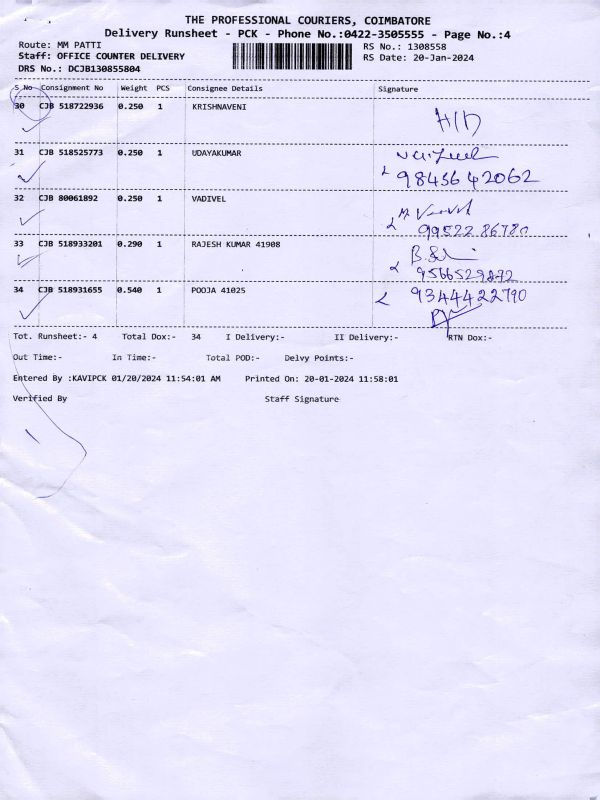 THE PROFESSIONAL COURIERS, COIMBATORE
Delivery Runsheet - PCK - Phone No.:0422-3505555 - Page No.:4
Route: MM PATTI RS No.: 1308558
Staff: OFFICE COUNTER DELIVERY RS Date: 20-Jan-2024
DRS No.: DCJB130855804
S.No Consignment No Weight PCS Consignee Details Signature
30 CJB 518722936 0.250 1 KRISHNAVENI
31 CJB 518525773 0.250 1 UDAYAKUMAR
9845642062
32 CJB 80061892 0.250 1 VADIVEL
99522 86780
33 CJB 518933201 0.290 1 RAJESH KUMAR 41908
9566529892
34 CJB 518931655 0.540 1 POOJA 41025
9344422790
Tot. Runsheet:- 4 Total Dox:- 34 I Delivery:- II Delivery:- RTN Dox:-
Out Time:- In Time:- Total POD:- Delvy Points:-
Entered By :KAVIPCK 01/20/2024 11:54:01 AM Printed On: 20-01-2024 11:58:01
Verified By Staff Signature